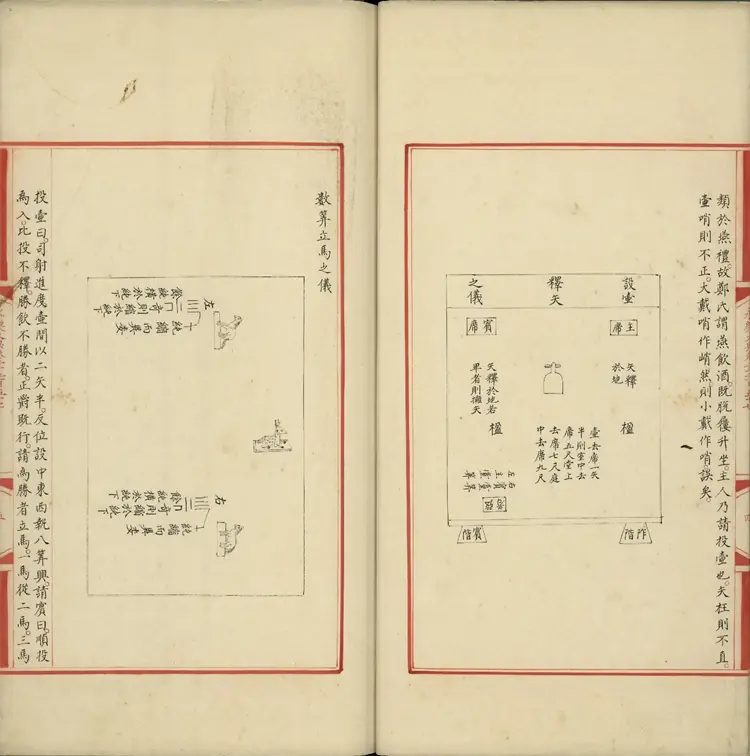 類於燕禮。故鄭氏謂燕飲酒。既脫屨升坐。主人乃請投壺也。矢枉則不直。
壺哨則不正。大戴哨作峭。然則小戴作哨誤矣。
設壺
釋矢
之儀
主席
賓席
矢釋
於地
楹
壺去席一矢
半則室中去
席五尺堂上
去席七尺庭
中去席九尺
矢釋於地若
卑者則擁矢
楹
阼階
賓階
數筭立馬之儀
左
十純縮而異委
奇則縮於純下
餘純橫於純下
右
十純縮而異委
奇則縮於純下
餘純橫於純下
投壺曰。司射進度壺間以二矢半。反位設中東面執八筭興。請賓曰。順投
爲入。比投不釋。勝飲不勝者。正爵既行。請爲勝者立馬。一馬從二馬。三馬